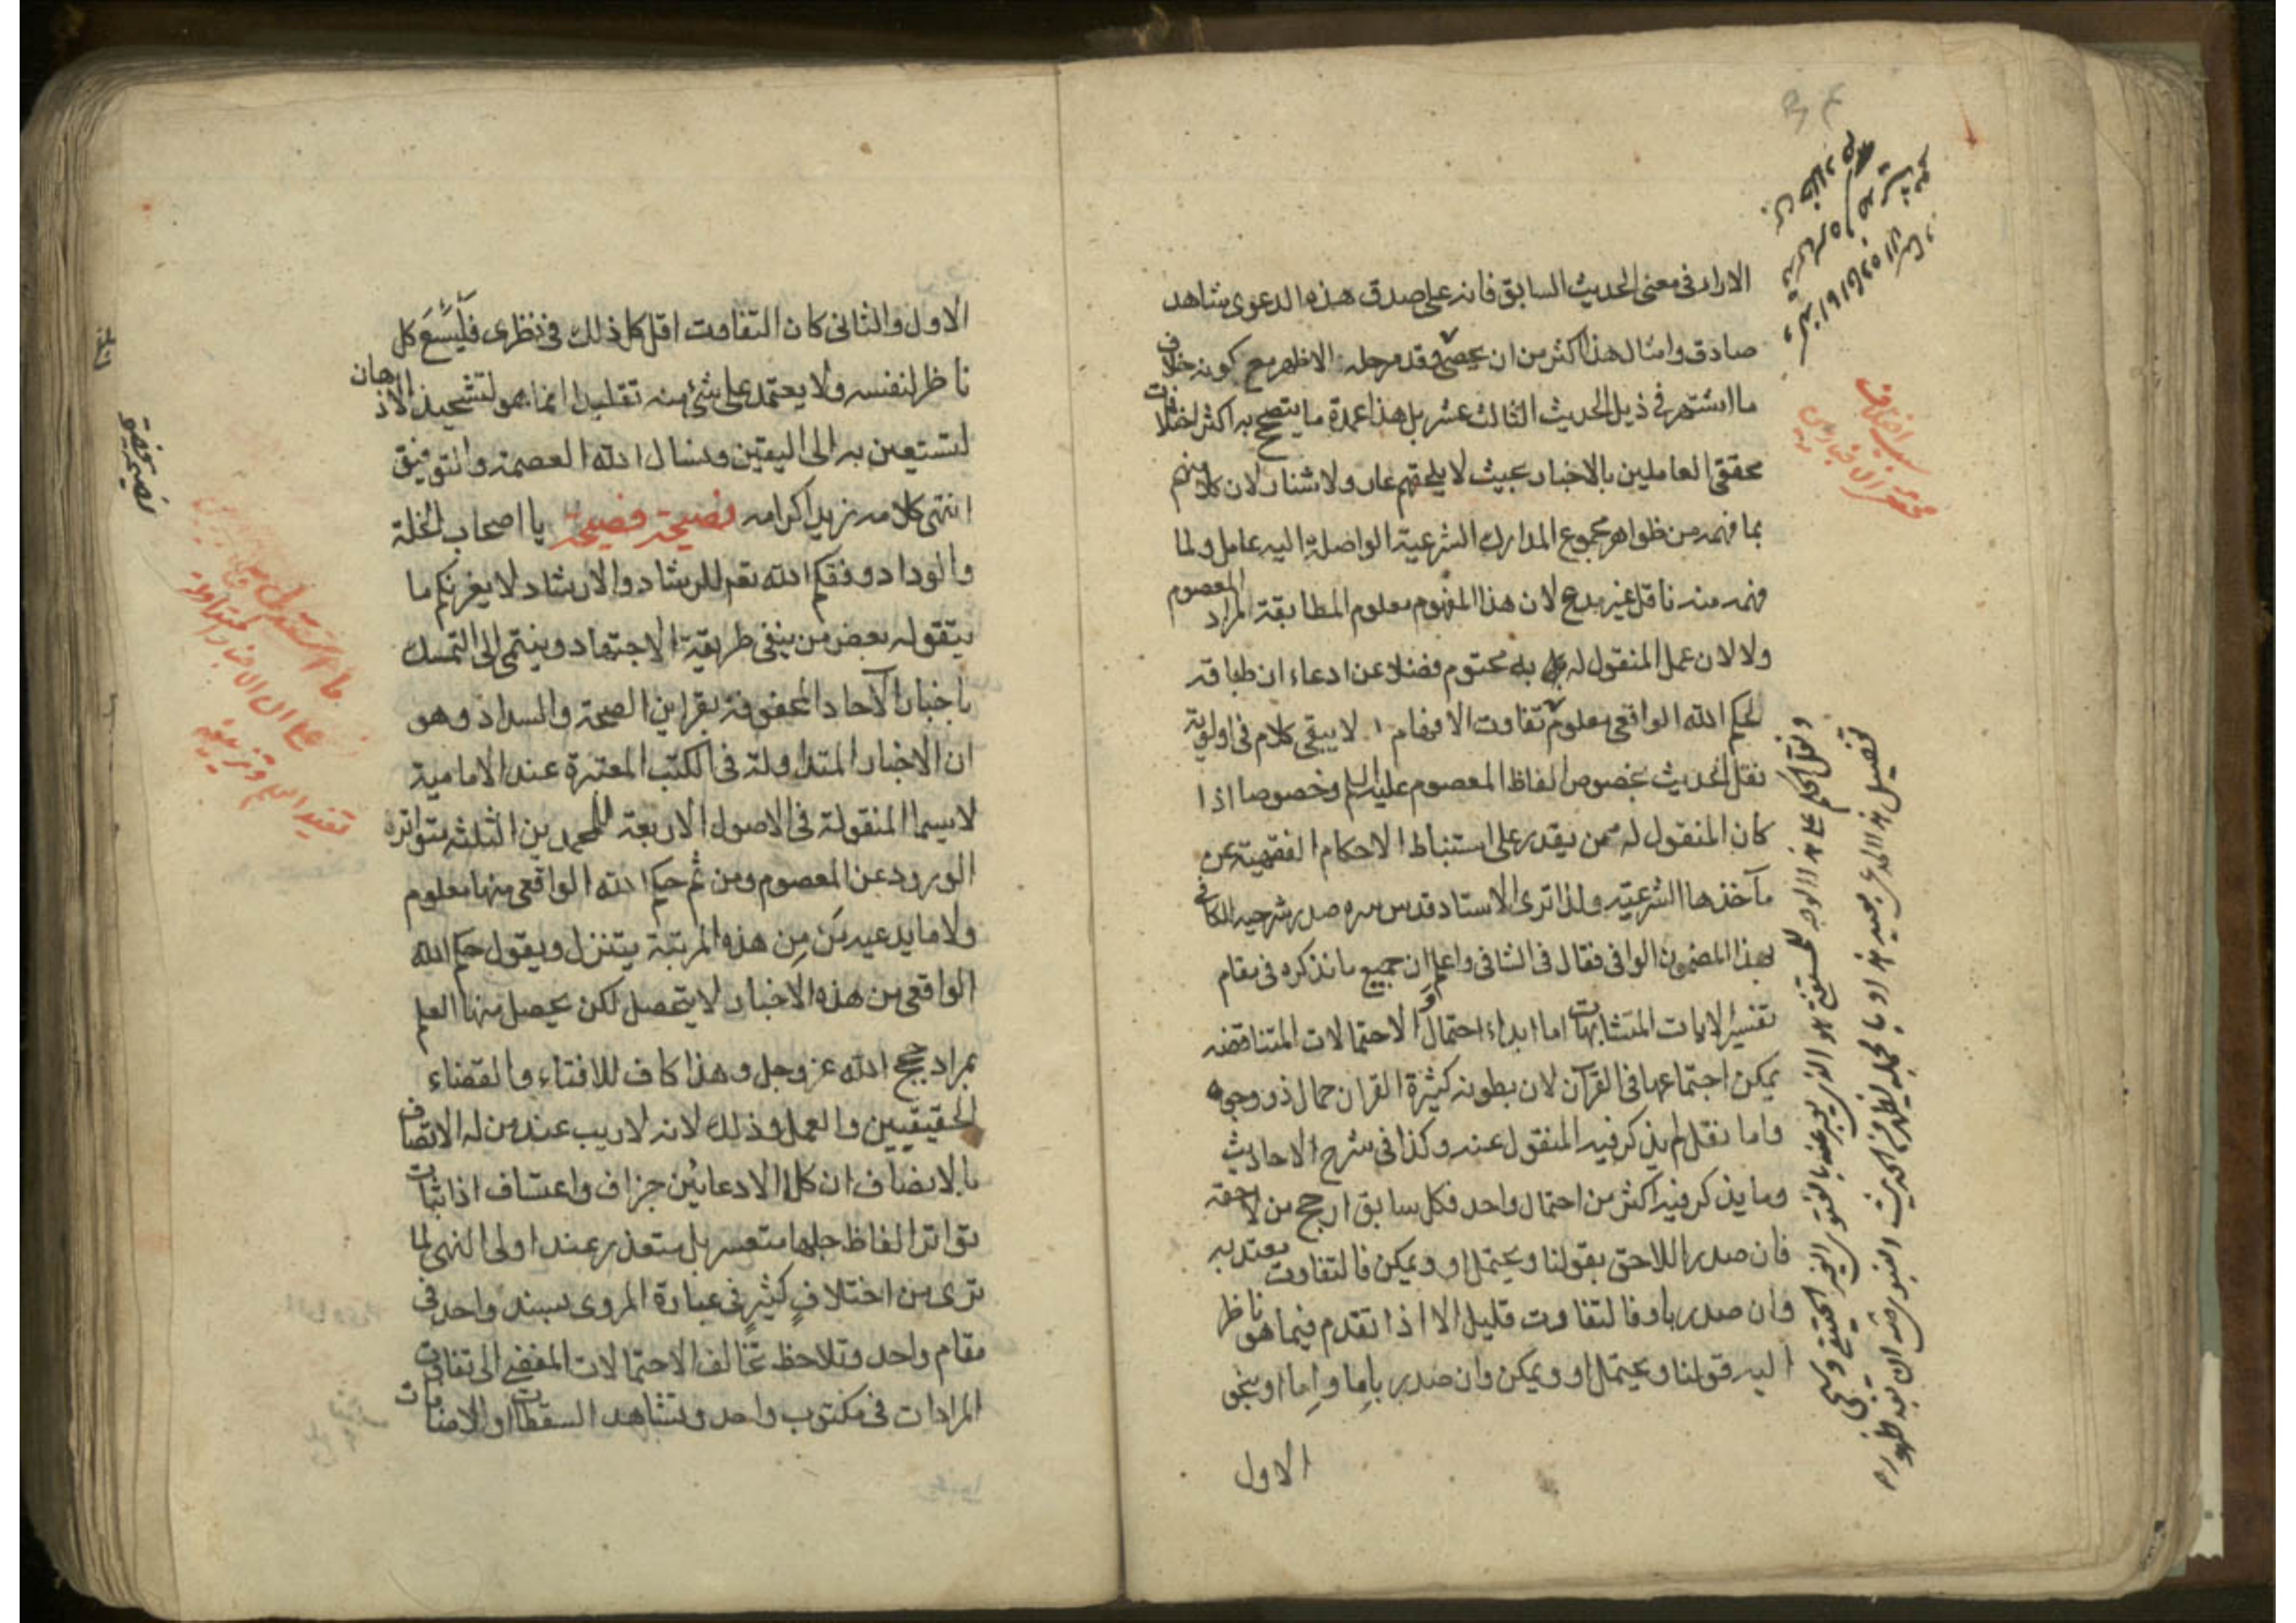 الاراد فى معنى الحديث السابق فانه على صدق هذه الدعوى شاهد
صادق وامثال هذا اكثر من ان يحصى وقد مر جله الاظهر مع كونه خلاف
ما اشتهر فى ذيل الحديث الثالث عشر بل هذا عمدة ما يتصحح به اكثر اختلافات
محققى العاملين بالاخبار بحيث لا يلحقهم عار ولا شنار لان كلا منهم
بما فهمه من ظواهر مجموع المدارك الشرعية الواصلة اليه عامل ولما
فهمه منه ناقل غير مدع لان هذا المفهوم معلوم المطابقة لمراد المعصوم
ولا لان عمل المنقول له به محتوم فضلا عن ادعاء ان طباقه
لحكم الله الواقعى معلوم تفاوت الافهام لا يبقى كلام فى اولوية
نقل الحديث بخصوص الفاظ المعصوم عليه السلم وخصوصا اذا
كان المنقول له ممن يقدر على استنباط الاحكام الفقهية عن
مآخذها الشرعية ولذا ترى الاستاد قدس سره صدر شرحيه للكافى
بهذا المضمون الوافى فقال فى الشافى واعلم ان جميع ما نذكره فى مقام
تفسير الايات المتشابهات اما ابداء احتمال او الاحتمالات المتناقضه
يمكن اجتماعها فى القرآن لان بطونه كثيرة القران حمال ذو وجوه
واما نقل لم يذكر فيه المنقول عنه وكذا فى شرح الاحاديث
وما يذكر فيه اكثر من احتمال واحد فكل سابق ارجح من لاحقه
فان صدر اللاحق بقولنا ويحتمل او ويمكن فالتفاوت يعتد به
وان صدر باو فالتفاوت قليل الا اذا تقدم فيما هو ناظر
اليه قولنا ويحتمل او ويمكن وان صدر باِما واِما او بنحو
الاول
الاول والثانى كان التفاوت اقل كل ذلك فى نظرى فليسع كل
ناظر لنفسه ولا يعتمد على شئ منه تقليدا انما هو لتشحيذ الاذهان
لتستعين به الى اليقين ونسال الله العصمة والتوفيق
انتهى كلامه زيد اكرامه نصيحة فضيحة يا اصحاب الخلة
والوداد وفقكم الله تعم للرشاد والارشاد لا يغرنكم ما
يتقوله بعض من ينفى طريقة الاجتهاد وينتمى الى التمسك
باخبار الآحاد المحفوفة بقراين الصحة والسداد وهو
ان الاخبار المتداولة فى الكتب المعتبرة عند الامامية
لا سيما المنقولة فى الاصول الاربعة للمحمدين الثلثه متواترة
الورود عن المعصوم ومن ثم حكم الله الواقعى منها معلوم
ولا ما يدعيه من مِن هذه المرتبة يتنزل ويقول حكم الله
الواقعى من هذه الاخبار لا يتحصل لكن يحصل منها العلم
بمراد حجج الله عز وجل وهذا كاف للافتاء والقضاء
الحقيقيين والعمل وذلك لانه لا ريب عند من له الاتصاف
بالانصاف ان كلا الادعائين جزاف واعتساف اذ اثبات
تواتر الفاظ جلها متعسر بل متعذر عند اولى النهى لما
ترى من اختلافٍ كثيرٍ فى عبارة المروى بسند واحد فى
مقام واحد وتلاحظ تخالف الاحتمالات المفضى الى تفاوت
المرادات فى مكتوب واحد وتشاهد السقطات او الاضافات
نصيحة فضيحة
بلغ